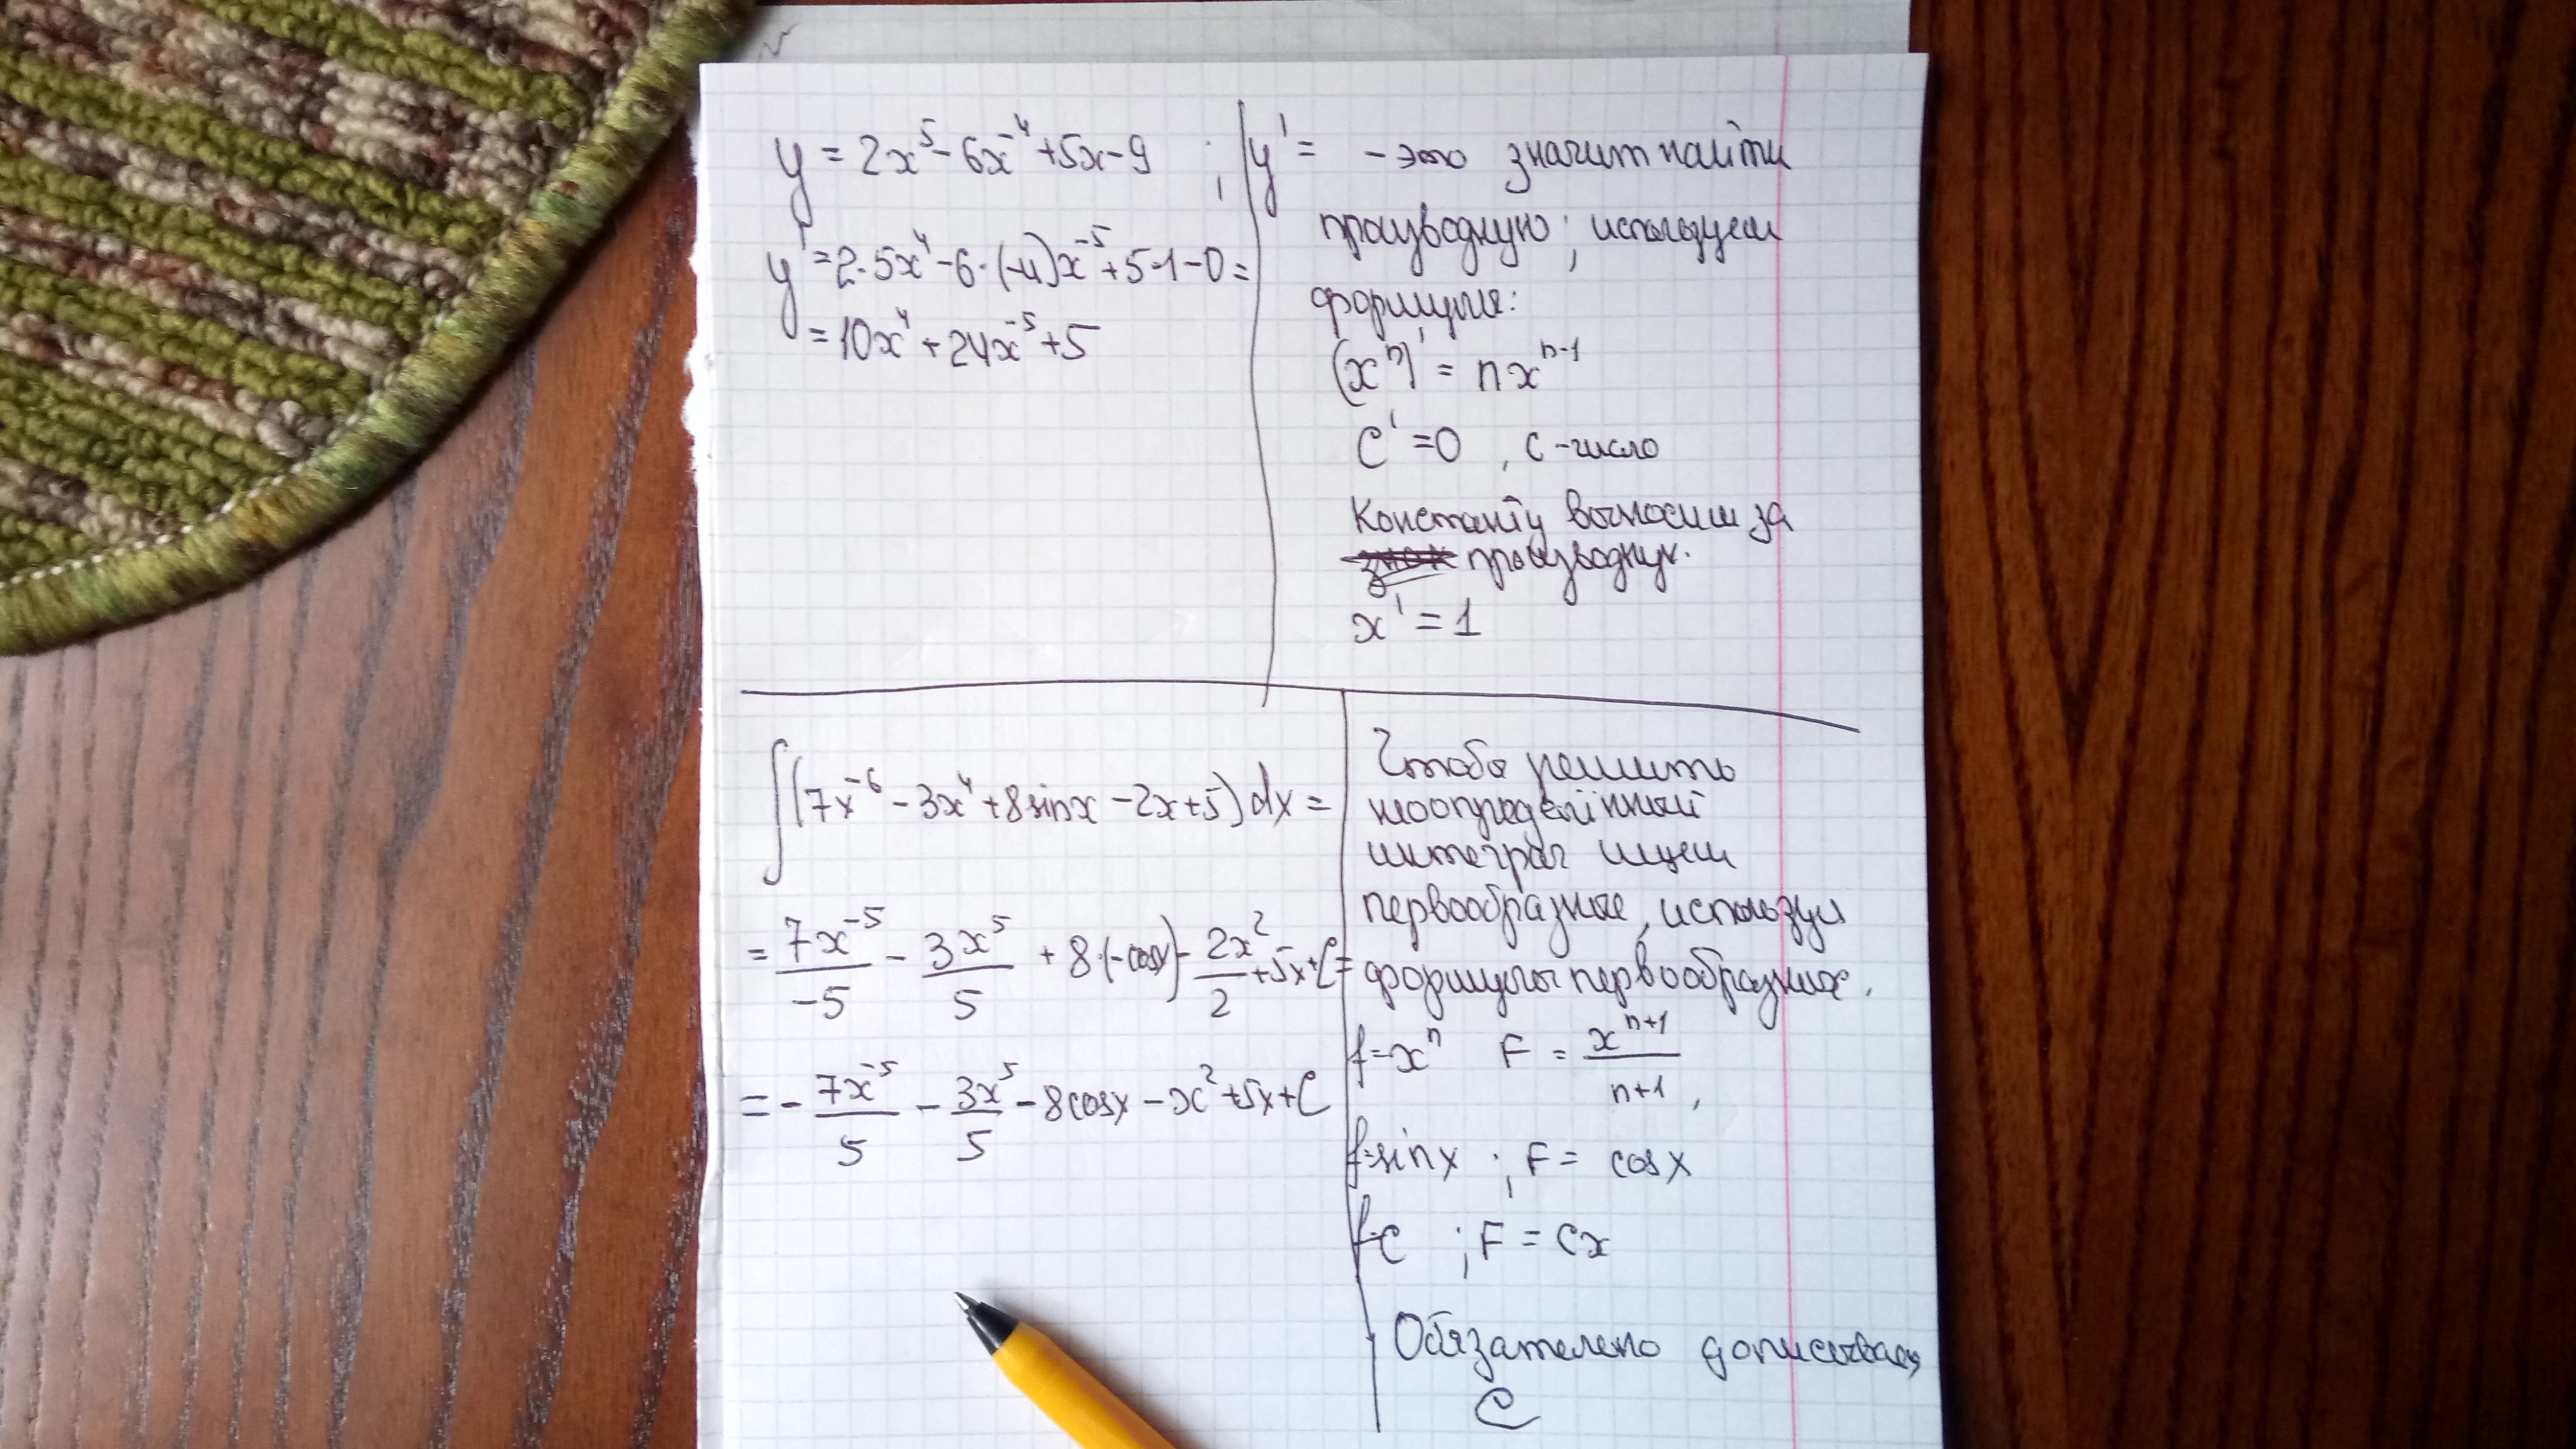 y = 2x⁵ - 6x⁻⁴ + 5x - 9 ;
y' = 2·5x⁴ - 6·(-4)x⁻⁵ + 5·1 - 0 =
= 10x⁴ + 24x⁻⁵ + 5
y' = - это значит найти
производную; используем
формулы:
(xⁿ)' = nxⁿ⁻¹
C' = 0 , C - число
Константу выносим за
производную.
x' = 1
∫(7x⁻⁶ - 3x⁴ + 8sinx - 2x + 5)dx =
= 7x⁻⁵/-5 - 3x⁵/5 + 8·(-cosx) - 2x²/2 + 5x + C =
= - 7x⁻⁵/5 - 3x⁵/5 - 8cosx - x² + 5x + C
Чтобы решить
неопределённый
интеграл ищем
первообразные, используя
формулы первообразных.
f=xⁿ F = xⁿ⁺¹/n+1 ,
f=sinx ; F = cosx
f=C ; F = Cx
Обязательно дописываем
C